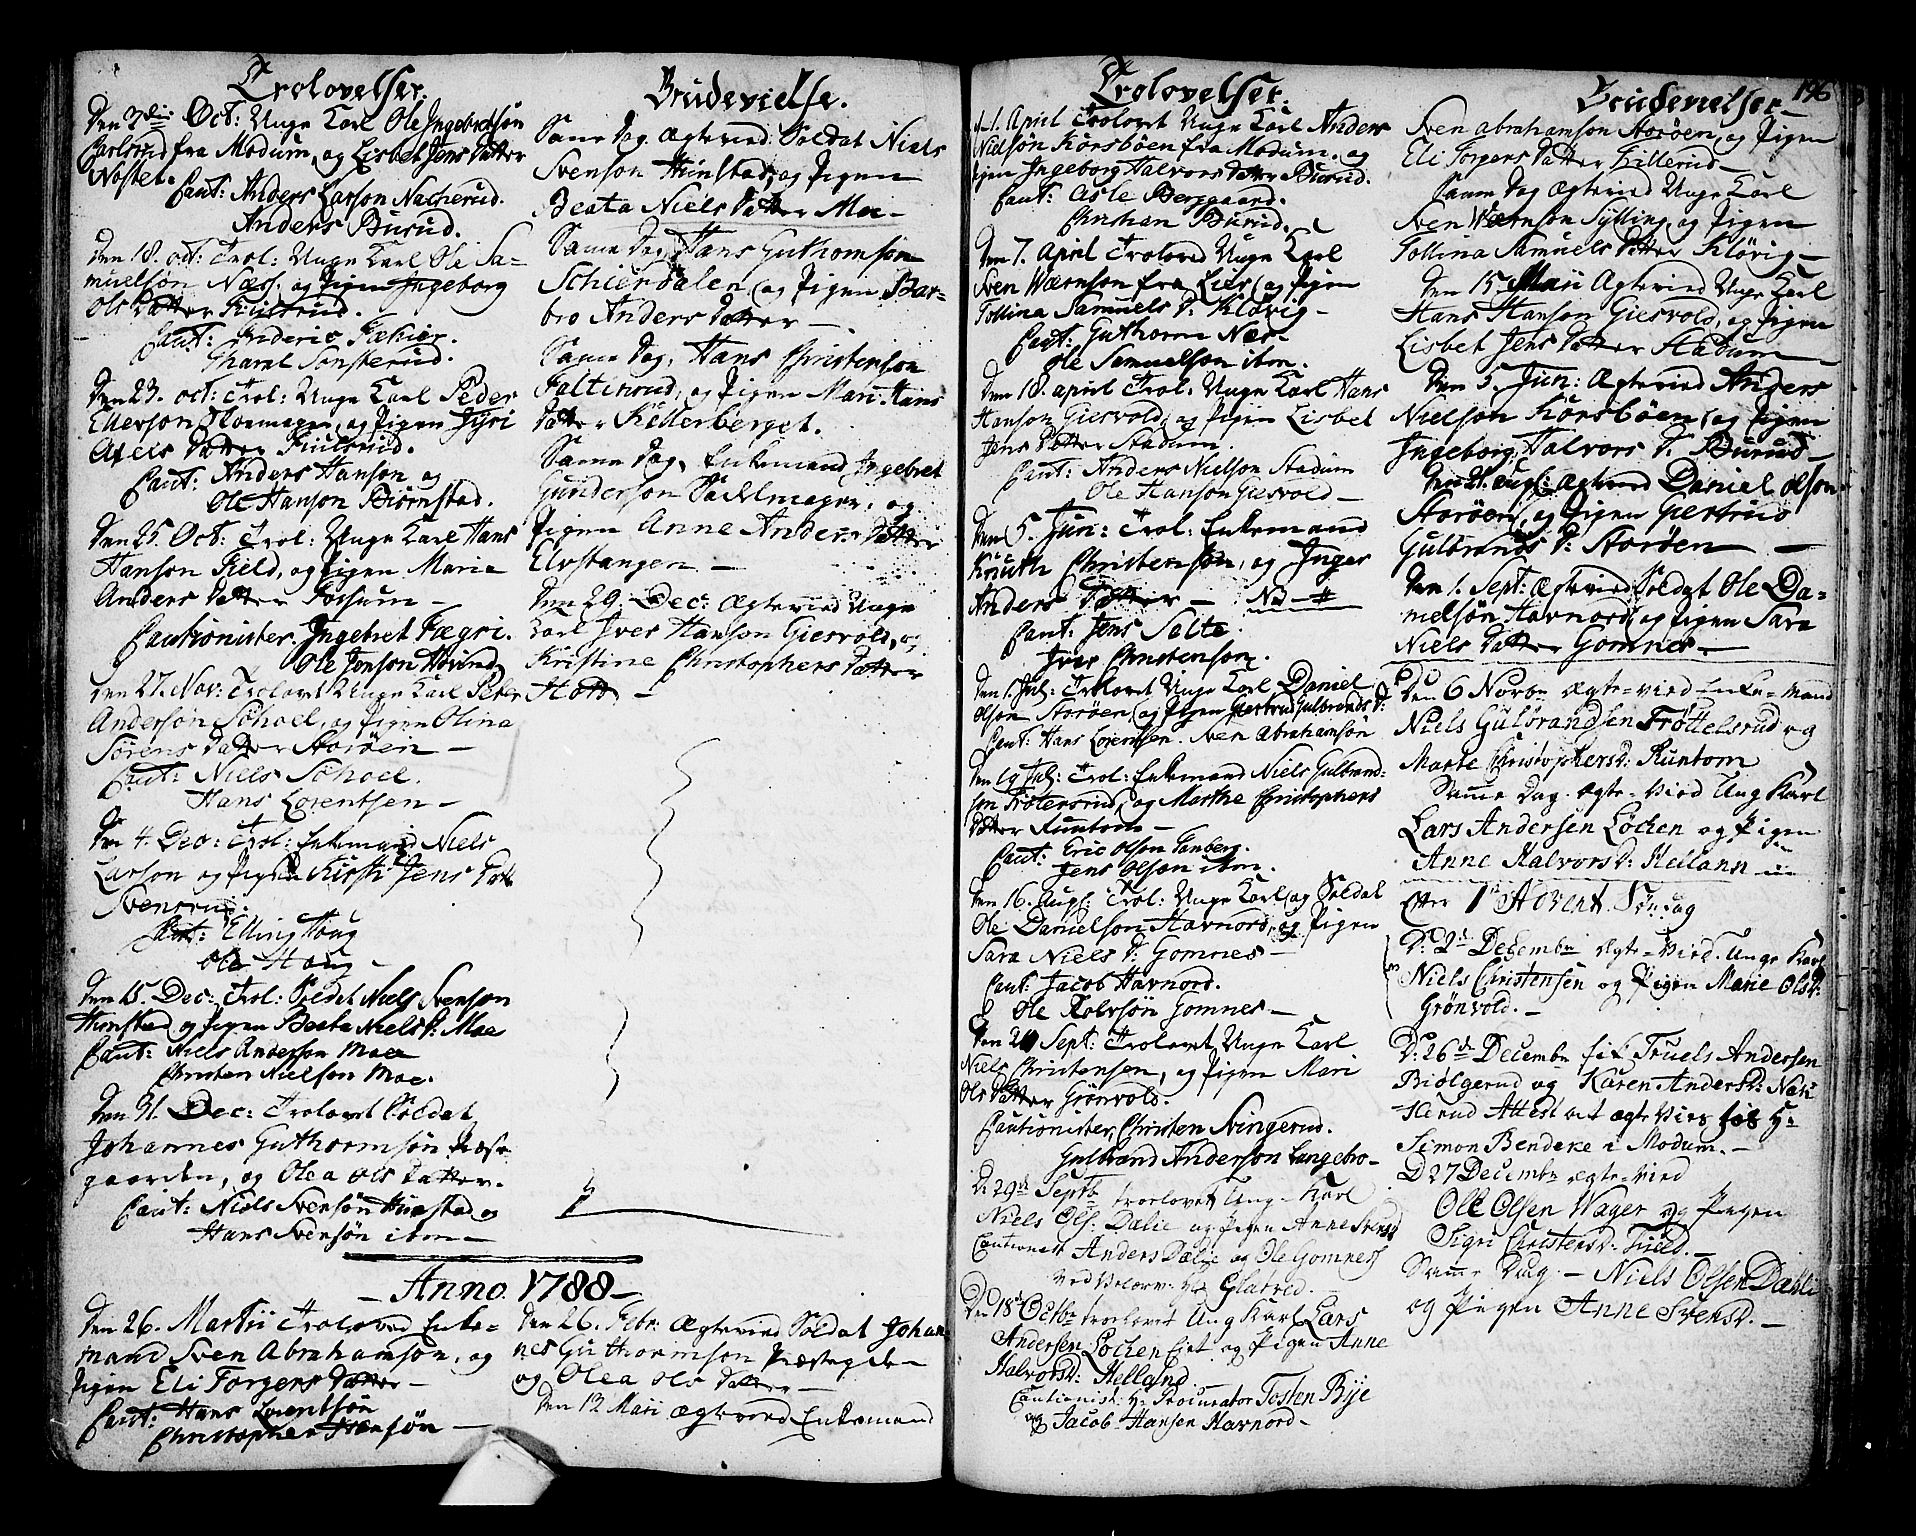 Trolovelser.
Den 7de Oct: Unge Karl Ole Ingebretsøn
Carlsrud fra Modum, og Lisbet Jens Datter
Nostet. Caut: Anders Larson Nacherud.
Anders Burud.
Den 18. oct: Trol: Unge Karl Ole Sa-
muelsøn Næss, og Pigen Ingeborg
Ols Datter
Caut: Frideric
Den 23. oct: Trol: Unge Karl Peder
Ellevson og Pigen Jyri
Axels Datter Fiulsrud.
Caut: Anders Hanson og
Ole Hanson Biørnstad.
Den 25. Oct: Trol: Unge Karl Hans
Hanson Field, og Pigen Marie
Anders Datter Fossum -
Cautionister. Ingebret Fægri.
Ole Jonson Hovind
Den 27. Nov: Trolovet Unge Karl Peter
Anderson Søhoel, og Pigen Olina
Sørens Datter Storøen -
Caut: Niels Søhoel.
Hans Lorentsen -
Den 4. Dec: Trol: Enkemand Niels
Larson og Pigen Kirsti Jens Datt
Svensrud.
Caut: Elling Houg
Ole Houg -
Den 15. Dec: Trol: Soldat Niels Svenson
Hunstad og Pigen Beata Niels D: Moe
Caut: Niels Anderson Moe
Christen Nielson Moe.
Den 31. Dec: Trolovet Soldat
Johannes Guthormsøn Præste
gaarden, og Olea Ols Datter.
Caut: Niels Svensøn Hunstad og
Hans Svensøn ibm -
- Anno 1788 -
Den 26. Martii Troloved Enke-
mand Sven Abrahamson, og
Pigen Eli Torgers Datter -
Caut: Hans Lorentsøn
Christopher Iversøn -
Brudevielse.
Same Dag Ægtevied Soldat Niels
Svenson Hunstad, og Pigen
Beata Niels Datter Moe -
Same Dag, Hans Guthomson
Schierdalen, og Pigen Bar-
bro Anders Datter -.
Same Dag, Hans Christenson
Faltinrud, og Pigen Mari Hans
Datter Kitterberget.
Same Dag, Enkemand Ingebret
Gunderson Sadelmager, og
Pigen Anne Anders Datter
Elvstangen -
Den 29. Dec: Ægtevied Unge
Karl Iver Hanson Giesvold, og
Kristine Christophers Datter
Hott -
Den 26. Febr: Ægtevied Soldat Johan
nes Guthormson Præstegden
og Olea Ols Datter -
Den 12 Mari Ægtevied Enkemand
Trolovelser.
d. 1. April Trolovet Unge Karl Anders
Nielsøn Korsbøen fra Modum. og
Pigen Ingeborg Halvors Datter Burud.
Caut: Asle Berggaard.
Christian Burud.
Den 7. April Troloved Unge Karl
Sven Wærnson fra Lier, og Pigen
Tollina Samuels D: Kløvig -
Caut: Guthorm Næs
Ole Samuelson ibm.
Den 18. april Trol: Unge Karl Hans
Hanson Giesvold, og Pigen Lisbet
Jens Datter Stadum.
Caut: Anders Nielson Stadum
Ole Hanson Giesvold -
Den 5. Jun: Trol: Enkemand
Knuth Christensøn, og Inger
Anders Datter - NB #
Caut: Jens Solte.
Iver Christenson.
Den 1. Jul: Trolovet Unge Karl Daniel
Olson Storøen, og Pigen Giertrud Gulbrands D:
Caut: Hans Lorentsen. Sven Abrahamsøn
Den 19 Jul: Trol: Enkemand Niels Gulbrand-
son Frøtersrud, og Marthe Christophers
Datter Runtom -
Caut: Eric Olson Tanberg.
Jens Olson ibm.
Den 16. Aug: Trol: Unge Karl og Soldat
Ole Danielson Havnord, og Pigen
Sara Niels D: Gomnes -
Caut: Jacob Havnord.
Ole Rolvsøn Gomnes -
Den 20 Sept: Trolovet Unge Karl
Niels Christensen, og Pigen Mari
Ols Datter Grønvold.
Cautionister, Christen Svingerud.
Gulbrand Anderson Langebro -
D: 29de Septb troelovet Ung-Karl
Niels Ols: Dælie og Pigen Anne Svensd
Cautionist Anders Dælie og Ole Gomness
Den 18de Octbr troelovet Ung Karl Lars
Andersen Løchen og Pigen Anne
Halvorsd: Helland.
Cautionist: Hr Procurator Tosten Bye
og Jacob Hansen Havnord -
Brudevielser -
196
Sven Abrahamson Storøen, og Pigen
Eli Torgers Datter Lillerud -
Same Dag Ægtevied Unge Karl
Sven Wærnson Sylling, og Pigen
Tollina Samuels Datter Kløvig -
Den 15 Maii Ægtevied Unge Karl
Hans Hanson Giesvold, og Pigen
Lisbet Jens Datter Stadum -
Den 5. Jun: Ægtevied Anders
Nielson Korsbøen, og Pigen
Ingeborg Halvors D: Burud -
Den 21. Aug: Ægtevied Daniel Olson
Storøen, og Pigen Giertrud
Gulbrands D: Storøen -
Den 1. Sept: Ægtevied Soldat Ole Da-
nielsøn Havnord, og Pigen Sara
Niels Datter Gomnes -
Den 6 Novbr Ægte-vied Enke-mand
Niels Gulbrandsen Frøttelsrud og
Marte Christophersd: Runtom
Samme Dag Ægte-vied Ung Karl
Lars Andersen Løchen og Pigen
Anne Halvorsd: Hellann
Efter 1te Advent Søndag
D: 2de Decembr Ægte-Vied Unge Karl
Niels Christensen og Pigen Marie Olsd:
Grønvold. -
D: 26de Decembr fik Truels Andersen
Biølgerud og Karen Andersd: Nak
kerud Attest at ægte vies hos Hr
Simon Bendeke i Modum. -
D 27 Decembr ægte-vied
Ole Olsen Wager og Pigen
Sigri Christensd: Field. -
Samme Dag - Niels Olsen Dæhli
og Pigen Anne Svensd. -